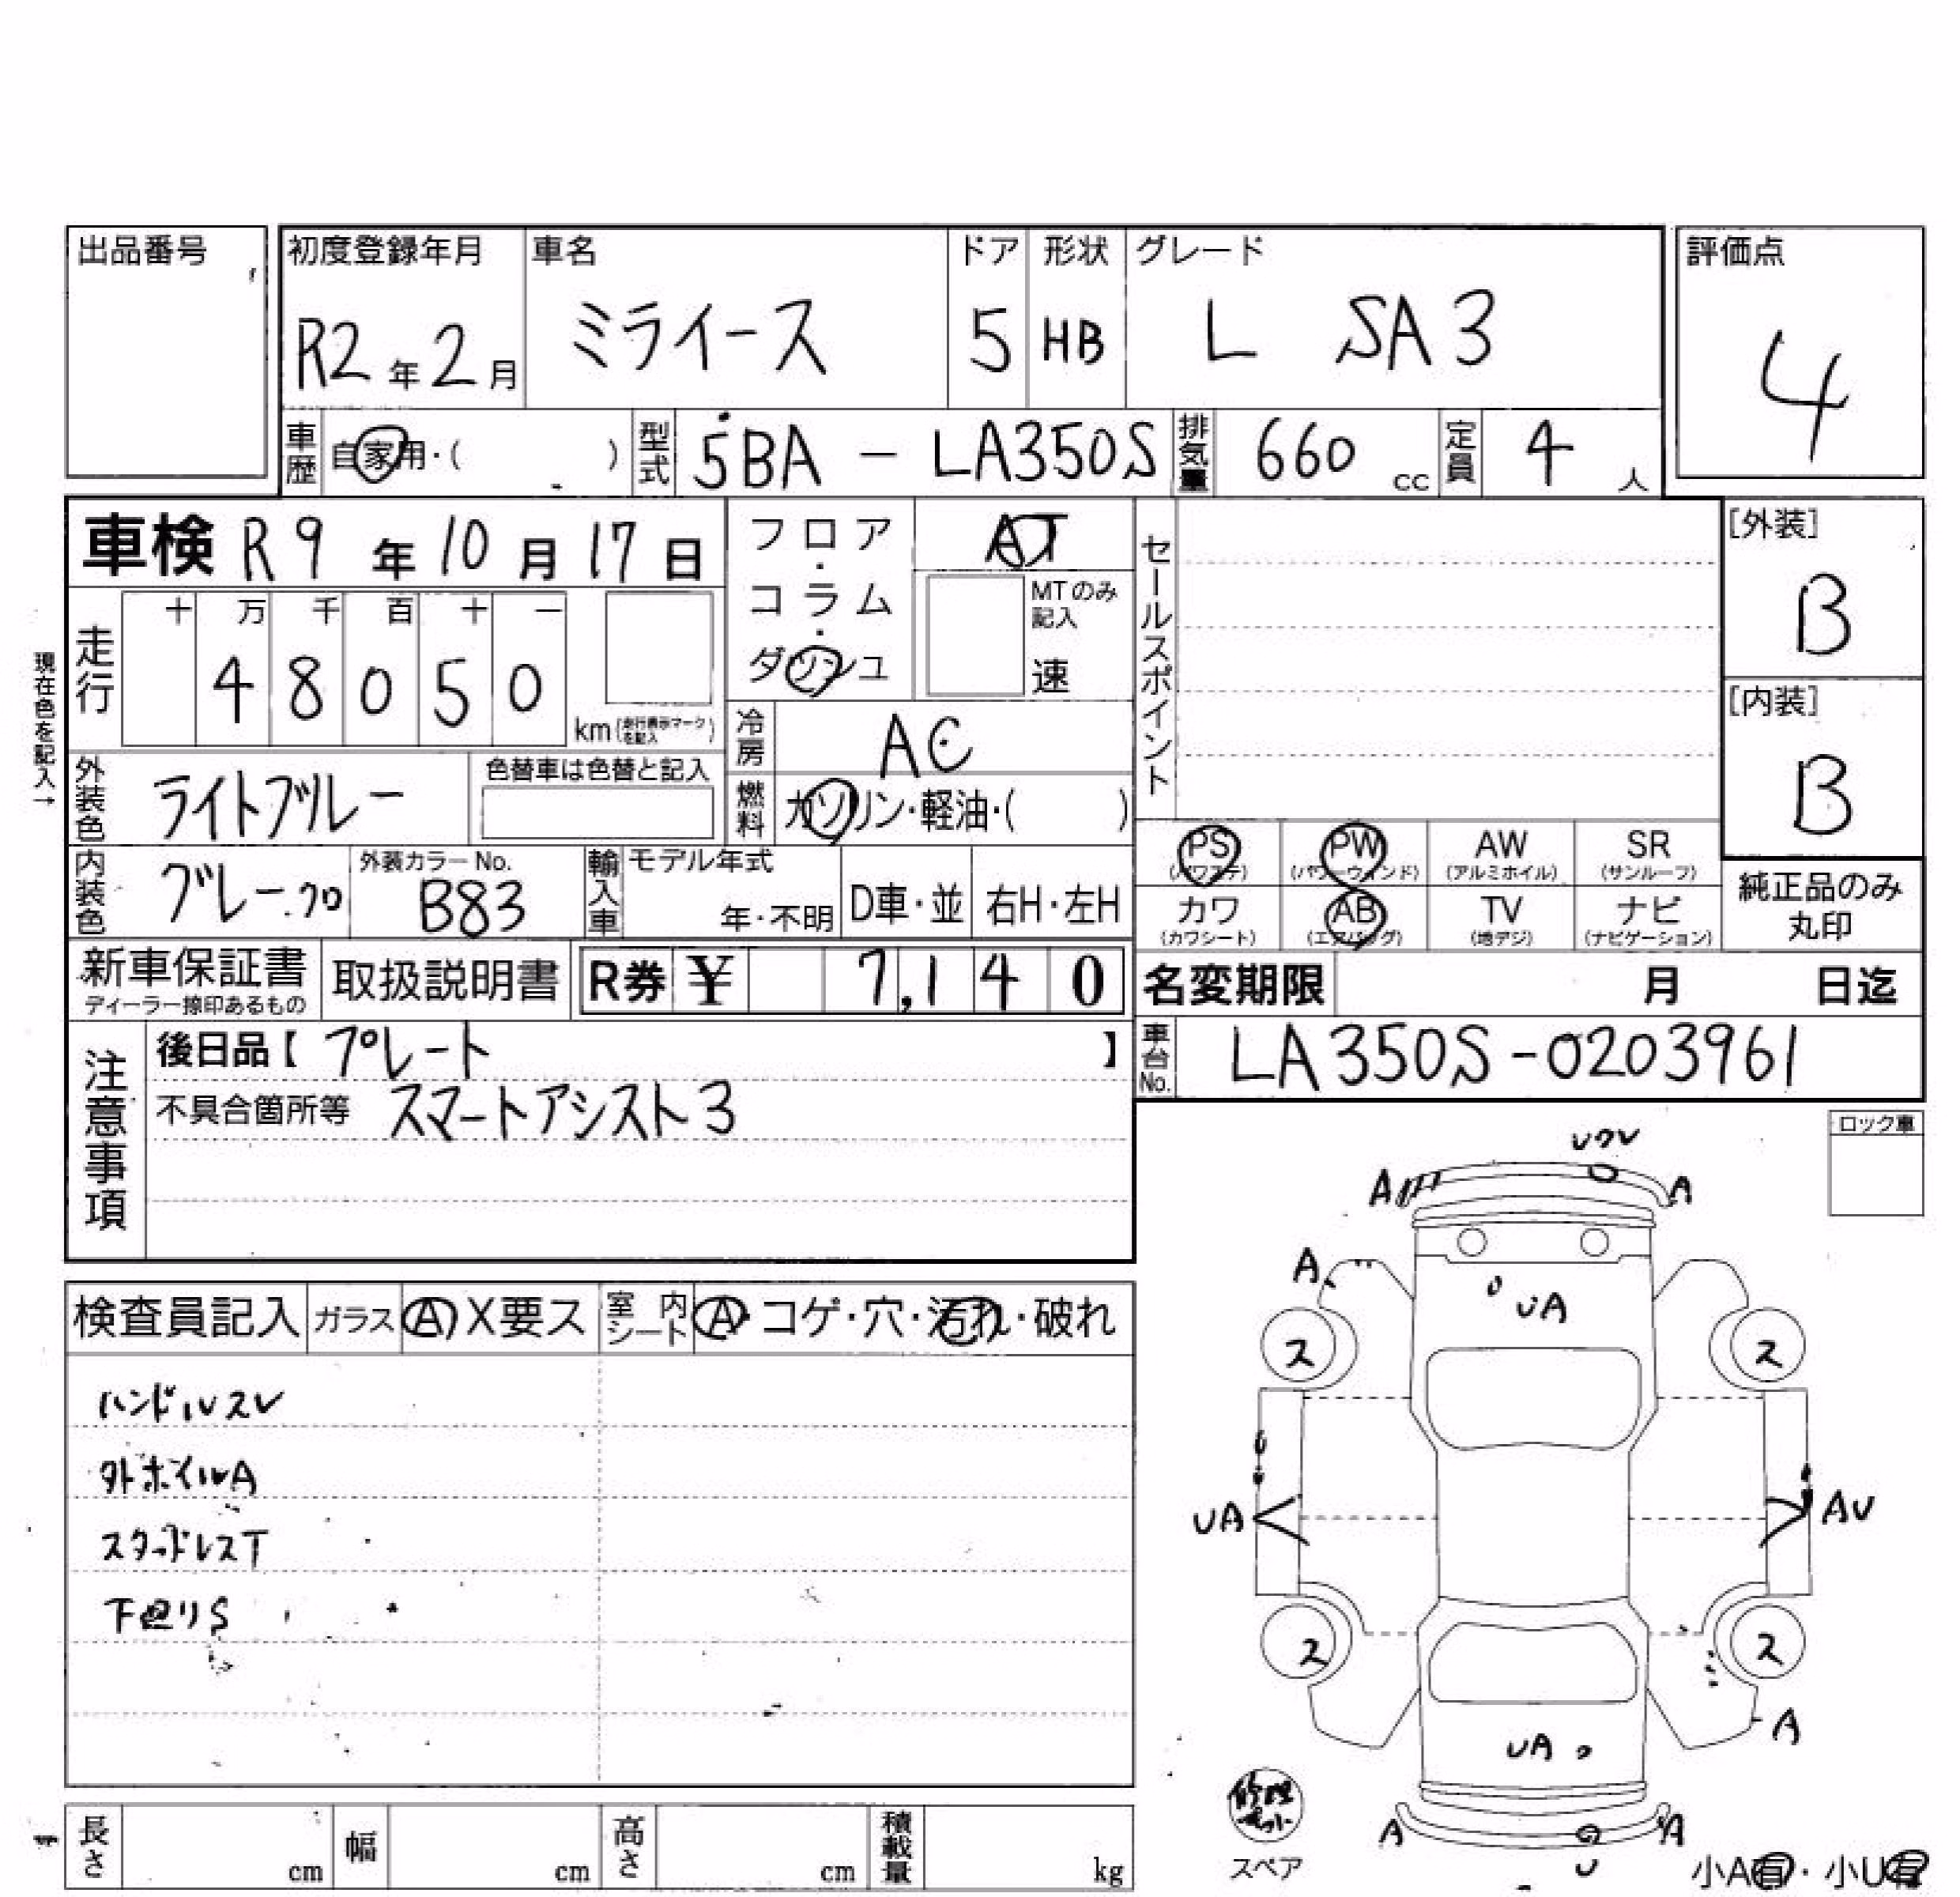 出品番号
初度登録年月 車名 ドア 形状 グレード 評価点
R2年2月 ミライース 5 HB L SA3 4
車歴 自家用・( ) 型式 5BA - LA350S 排気量 660 cc 定員 4 人
車検 R9年10月17日
フロア・コラム・ダッシュ AT
MTのみ記入 速
セールスポイント
[外装] B
[内装] B
現在色を記入→
走行 十 万 千 百 十 一
4 8 0 5 0 km (走行表示マークを記入)
冷房 AC
燃料 ガソリン・軽油・( )
外装色 ライトブルー 色替車は色替と記入
内装色 グレー.クロ 外装カラーNo. B83 輸入車 モデル年式 年・不明 D車・並 右H・左H
PS (パワステ) PW (パワーウィンド) AW (アルミホイル) SR (サンルーフ)
カワ (カワシート) AB (エアバッグ) TV (地デジ) ナビ (ナビゲーション)
純正品のみ丸印
新車保証書 ディーラー捺印あるもの 取扱説明書 R券 ¥ 7,140
名変期限 月 日迄
車台No. LA350S-0203961
注意事項
後日品【 プレート 】
不具合箇所等 スマートアシスト3
ロック車
検査員記入 ガラス A X要ス 室内シート A・コゲ・穴・汚れ・破れ
ハンドルスレ
外ホイルA
スタッドレスT
下廻りS
A A
A
UA
ス ス
UA AU
ス ス
UA
A
A A
U
修理キット
スペア
小A有・小U有
長さ cm 幅 cm 高さ cm 積載量 kg